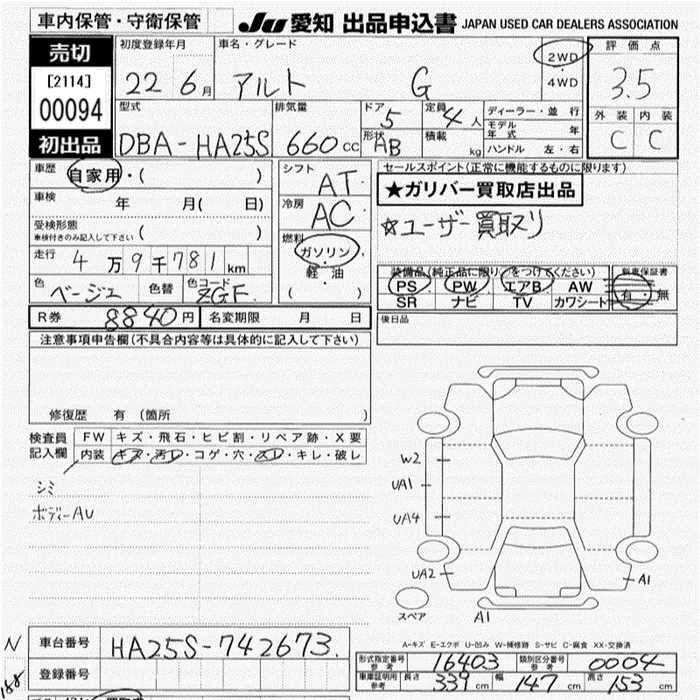 車内保管・守衛保管
JU 愛知 出品申込書 JAPAN USED CAR DEALERS ASSOCIATION
売切
[2114]
00094
初出品
初度登録年月
22 6月
車名・グレード
アルト G
2WD
4WD
評価点
3.5
外装 内装
C C
型式
DBA-HA25S
排気量
660cc
ドア 5
形状 AB
定員 4人
積載 kg
ディーラー・並行
モデル年式 年
ハンドル 左・右
車歴 自家用・( )
車検 年 月( 日)
受検形態 ( )
車検付きのみ記入して下さい
走行 4万9千781km
色 ベージュ 色替 色コード ZGF
シフト AT
冷房 AC
燃料 ガソリン・
軽油
( )
セールスポイント(正常に機能するものに限ります)
★ガリバー買取店出品
☆ユーザー買取り
装備品(純正品に限り○をつけてください)
PS PW エアB AW
SR ナビ TV カワシート
新車保証書
有・無
R券 8840円 名変期限 月 日
後日品
注意事項申告欄(不具合内容等は具体的に記入して下さい)
修復歴 有 (箇所 )
検査員記入欄
FW キズ・飛石・ヒビ割・リペア跡・X要
内装 キズ・汚レ・コゲ・穴・スレ・キレ・破レ
シミ
ボディーAU
W2
UA1
UA4
UA2
A1
スペア
A1
A-キズ E-エクボ U-凹み W-補修跡 S-サビ C-腐食 XX-交換済
N
車台番号 HA25S-742673.
登録番号
形式指定番号 参考 16403 類別区分番号 参考 0004
車庫証明用 参考 長さ 339cm 幅 147cm 高さ 153cm